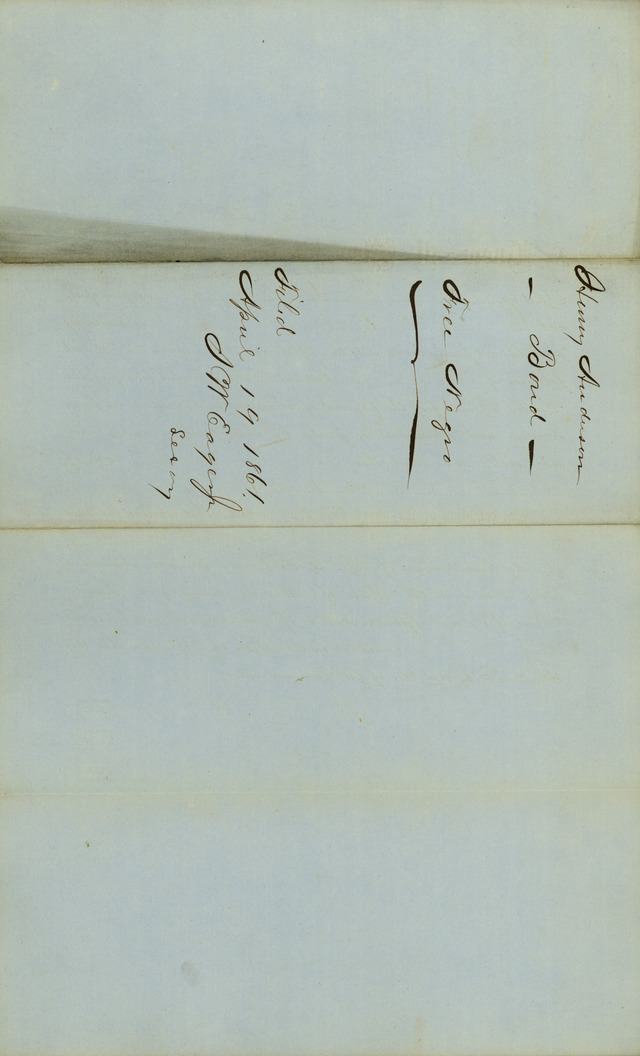 Henry Anderson
- Bond -
Free Negro
Filed
April 19 1861.
S W Eager Jr